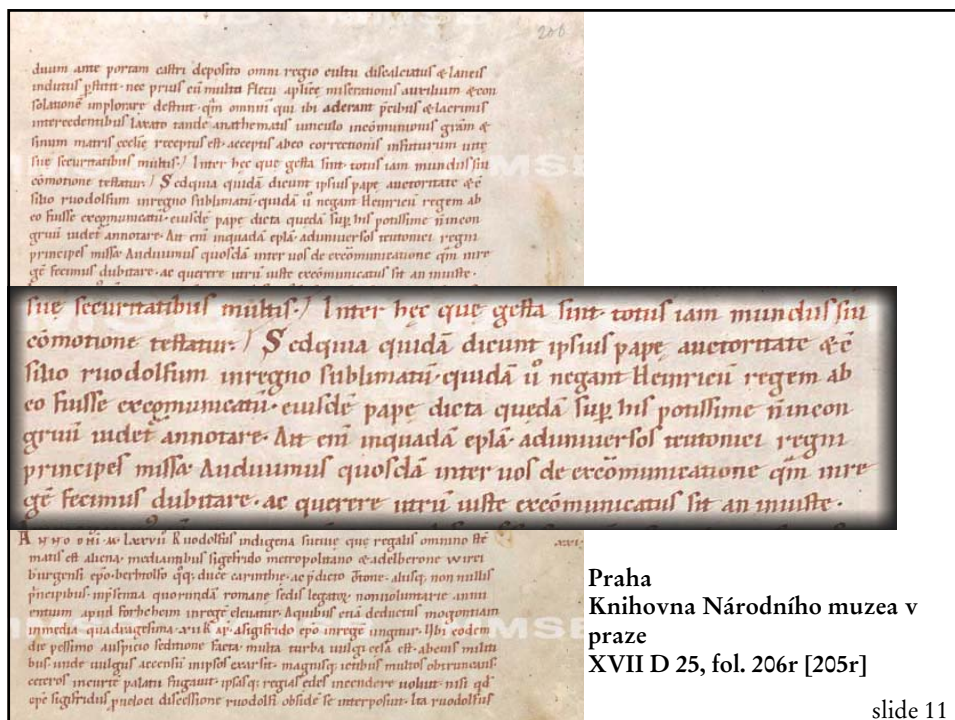 206
duum ante portam castri deposito omni regio cultu discalciatus & laneis
indutus p̄stitit · nec prius cū multo fletu aplicę miserationis auxilium & con
solationē implorare destitit · qm̄ omniū qui ibi aderant p̄cibus & lacrimis
intercedentibus laxato tandē anathematis uinculo in cōmunionis grām &
sinum matris ęcclię receptus est · acceptis ab eo correctionis
suę securitatibus multis · Inter hęc que gesta sint · totus iam mundus siu
cōmotione testatur · Sed quia quidā dicunt ipsius papę auctoritate & cō
silio ruodolfum in regno sublimatū · quidā ů negant Heinricū regem ab
eo fuisse excōmunicatū · eiusdē papę dicta quędā sup̱ his potissime n̄ incon
gruū uidet̄ annotare · Ait enī in quadā eplā · ad uniuersos teutonici regni
principes missa · Audiuimus quosdā inter uos de excōmunicatione qm̄ in re
gē fecimus dubitare · ac querere utrū iuste excōmunicatus sit an iniuste ·
suę securitatibus multis · Inter hęc que gesta sint · totus iam mundus siu
cōmotione testatur · Sed quia quidā dicunt ipsius papę auctoritate & cō
silio ruodolfum in regno sublimatū · quidā ů negant Heinricū regem ab
eo fuisse excōmunicatū · eiusdē papę dicta quędā sup̱ his potissime n̄ incon
gruū uidet̄ annotare · Ait enī in quadā eplā · ad uniuersos teutonici regni
principes missa · Audiuimus quosdā inter uos de excōmunicatione qm̄ in re
gē fecimus dubitare · ac querere utrū iuste excōmunicatus sit an iniuste ·
Anno dn̄i · M · lxxvii Ruodolfus indigena sueuię que regalis omnino stē
matis est aliena · mediantibus sigefrido metropolitano & adelberone wirci
burgensi epō · bertholfo q̊q; duce carinthię · ac p̄dicto Ottone · aliisq; non nullis
principibus · in p̄sentia quorundā romanę sedis legatoꝝ non uoluntarie annu
entium apud forheheim in regē eleuatur · A quibus etiā deductus mogontiam
in media quadragesima · xvii k ap̄ · a sigifrido epō in regē ungitur · Ubi eodem
die pessimo auspicio seditione facta · multa turba uulgi cęsa est · abeius militi
bus · unde uulgus accensū in ipsos exarsit · magnisq; ictibus multos obtruncans
ceteros in curtē palatii fugauit · ipsasq; regias ędes incendere uoluit · nisi qd̄
ępe sigifridus discessione ruodolfi obside se interposuit · Ita ruodolfus
Praha
Knihovna Národního muzea v
praze
XVII D 25, fol. 206r [205r]
slide 11